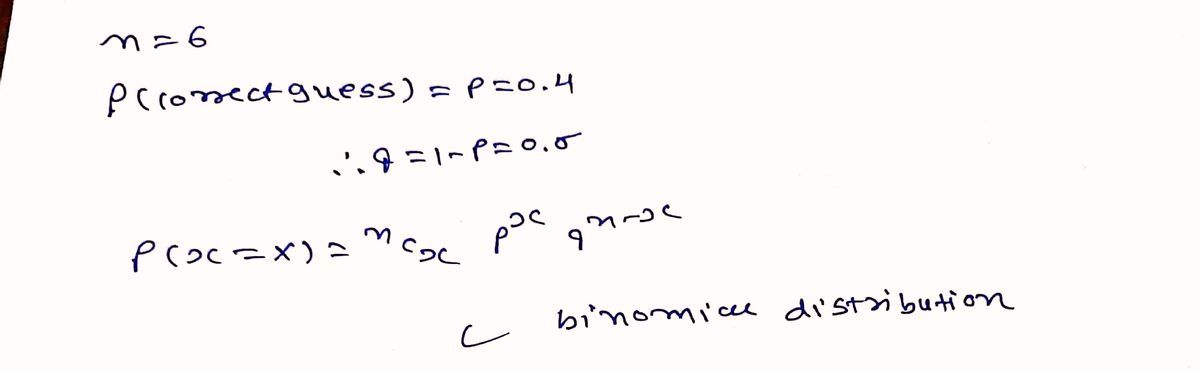 n = 6
P(correct guess) = P = 0.4
∴ q = 1 - P = 0.6
P(x = X) = ⁿCₓ pˣ qⁿ⁻ˣ
( binomial distribution